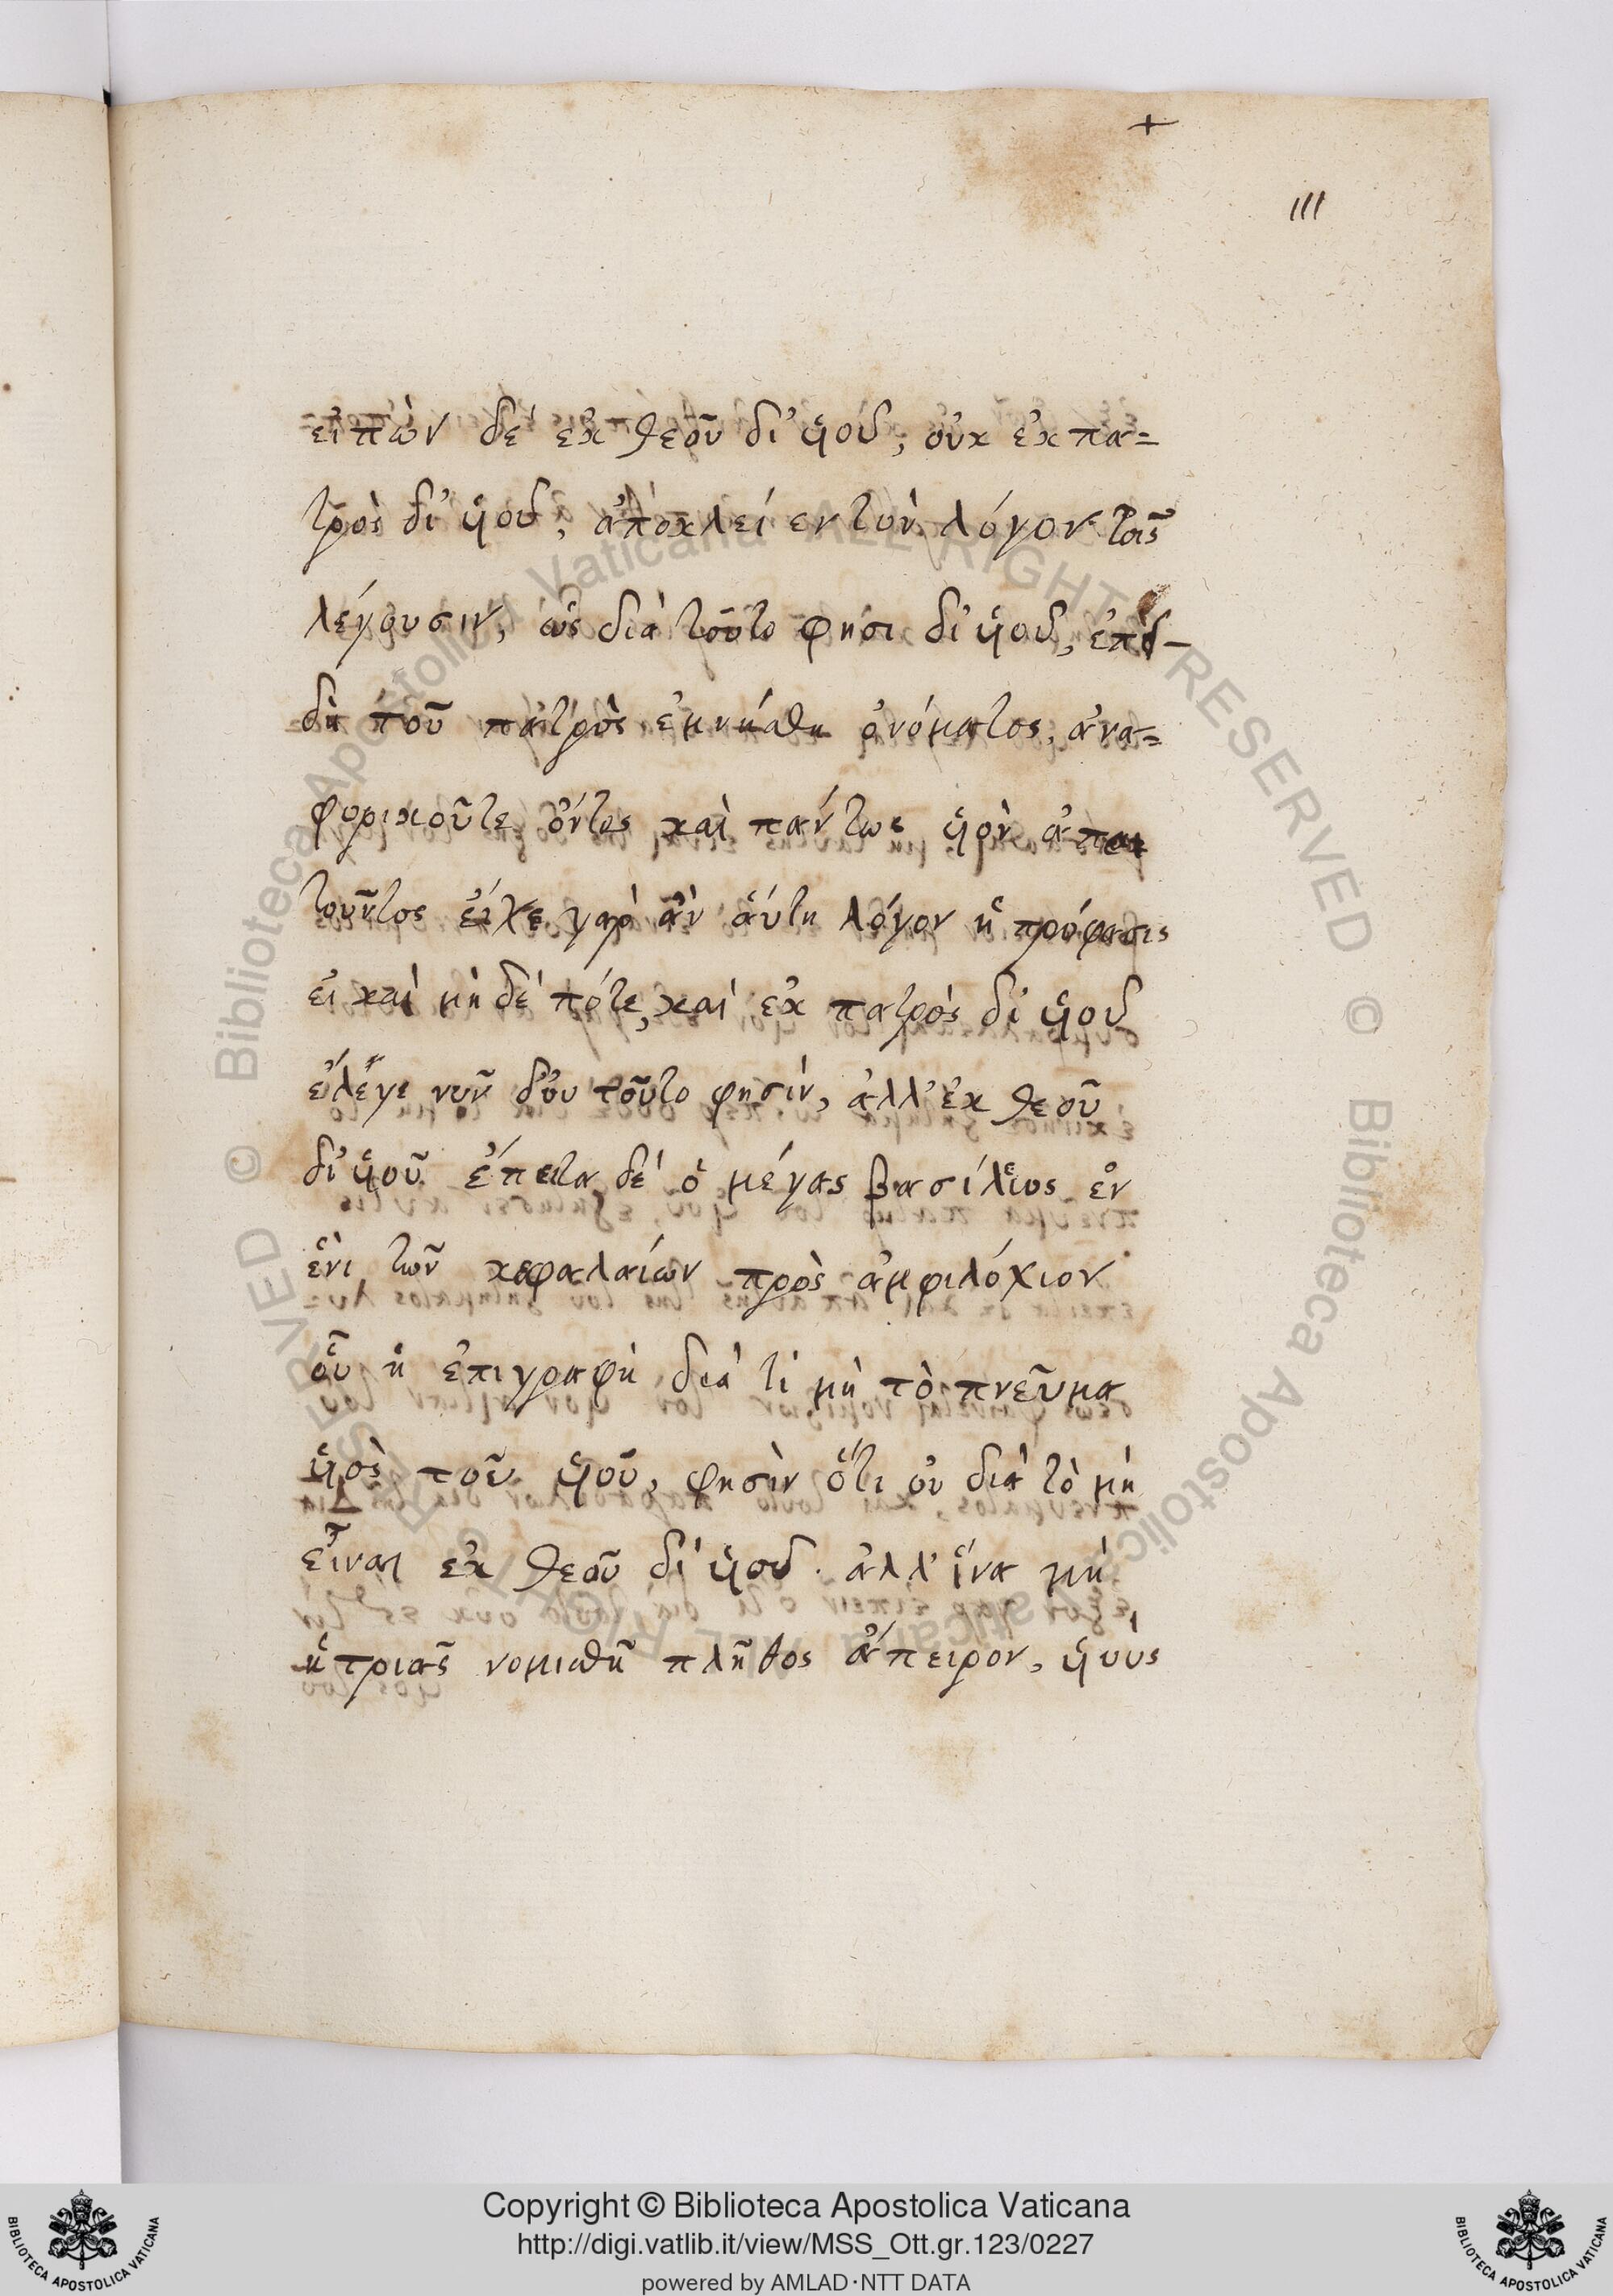 +
111
εἰπὼν δὲ ἐκ θεοῦ δι' ὑιοῦ, οὐκ ἐκ πα=
τρὸς δι' ὑιοῦ, ἀποκλεί εν τὸν λόγον τοῖς
λέγουσιν, ὡς διὰ τοῦτο φησι δι' ὑιοῦ, ἐπει-
δὴ τοῦ πατρὸς ἐμνήσθη ὀνόματος, ἀνα=
φορικοῦτε ὄντος καὶ πάντως ὑιὸν ἀπαι
τοῦντος εἶχε γὰρ ἂν ἅυτη λόγον ἡ πρόφασις
εἰ καὶ μὴ δέ πότε, καὶ ἐκ πατρὸς δι' ὑιοῦ
ἔλεγε νῦν δ' ὀυ τοῦτο φησίν, ἀλλ' ἐκ θεοῦ
δι' ὑιοῦ ἔπειτα δὲ ὁ μέγας βασίλειος ἐν
ἑνὶ τῶν κεφαλαίων πρὸς ἀμφιλόχιον
οὗ ἡ ἐπιγραφὴ διὰ τί μὴ τὸ πνεῦμα
ὑιὸς τοῦ ὑιοῦ, φησὶν ὅτι οὐ διὰ τὸ μὴ
εἶναι ἐκ θεοῦ δι' ὑιοῦ. ἀλλ' ἵνα μὴ
ἡ τριὰς νομισθῆ πλῆθος ἄπειρον, ὑιοὺς
Copyright © Biblioteca Apostolica Vaticana
http://digi.vatlib.it/view/MSS_Ott.gr.123/0227
powered by AMLAD·NTT DATA
BIBLIOTECA APOSTOLICA VATICANA
BIBLIOTECA APOSTOLICA VATICANA